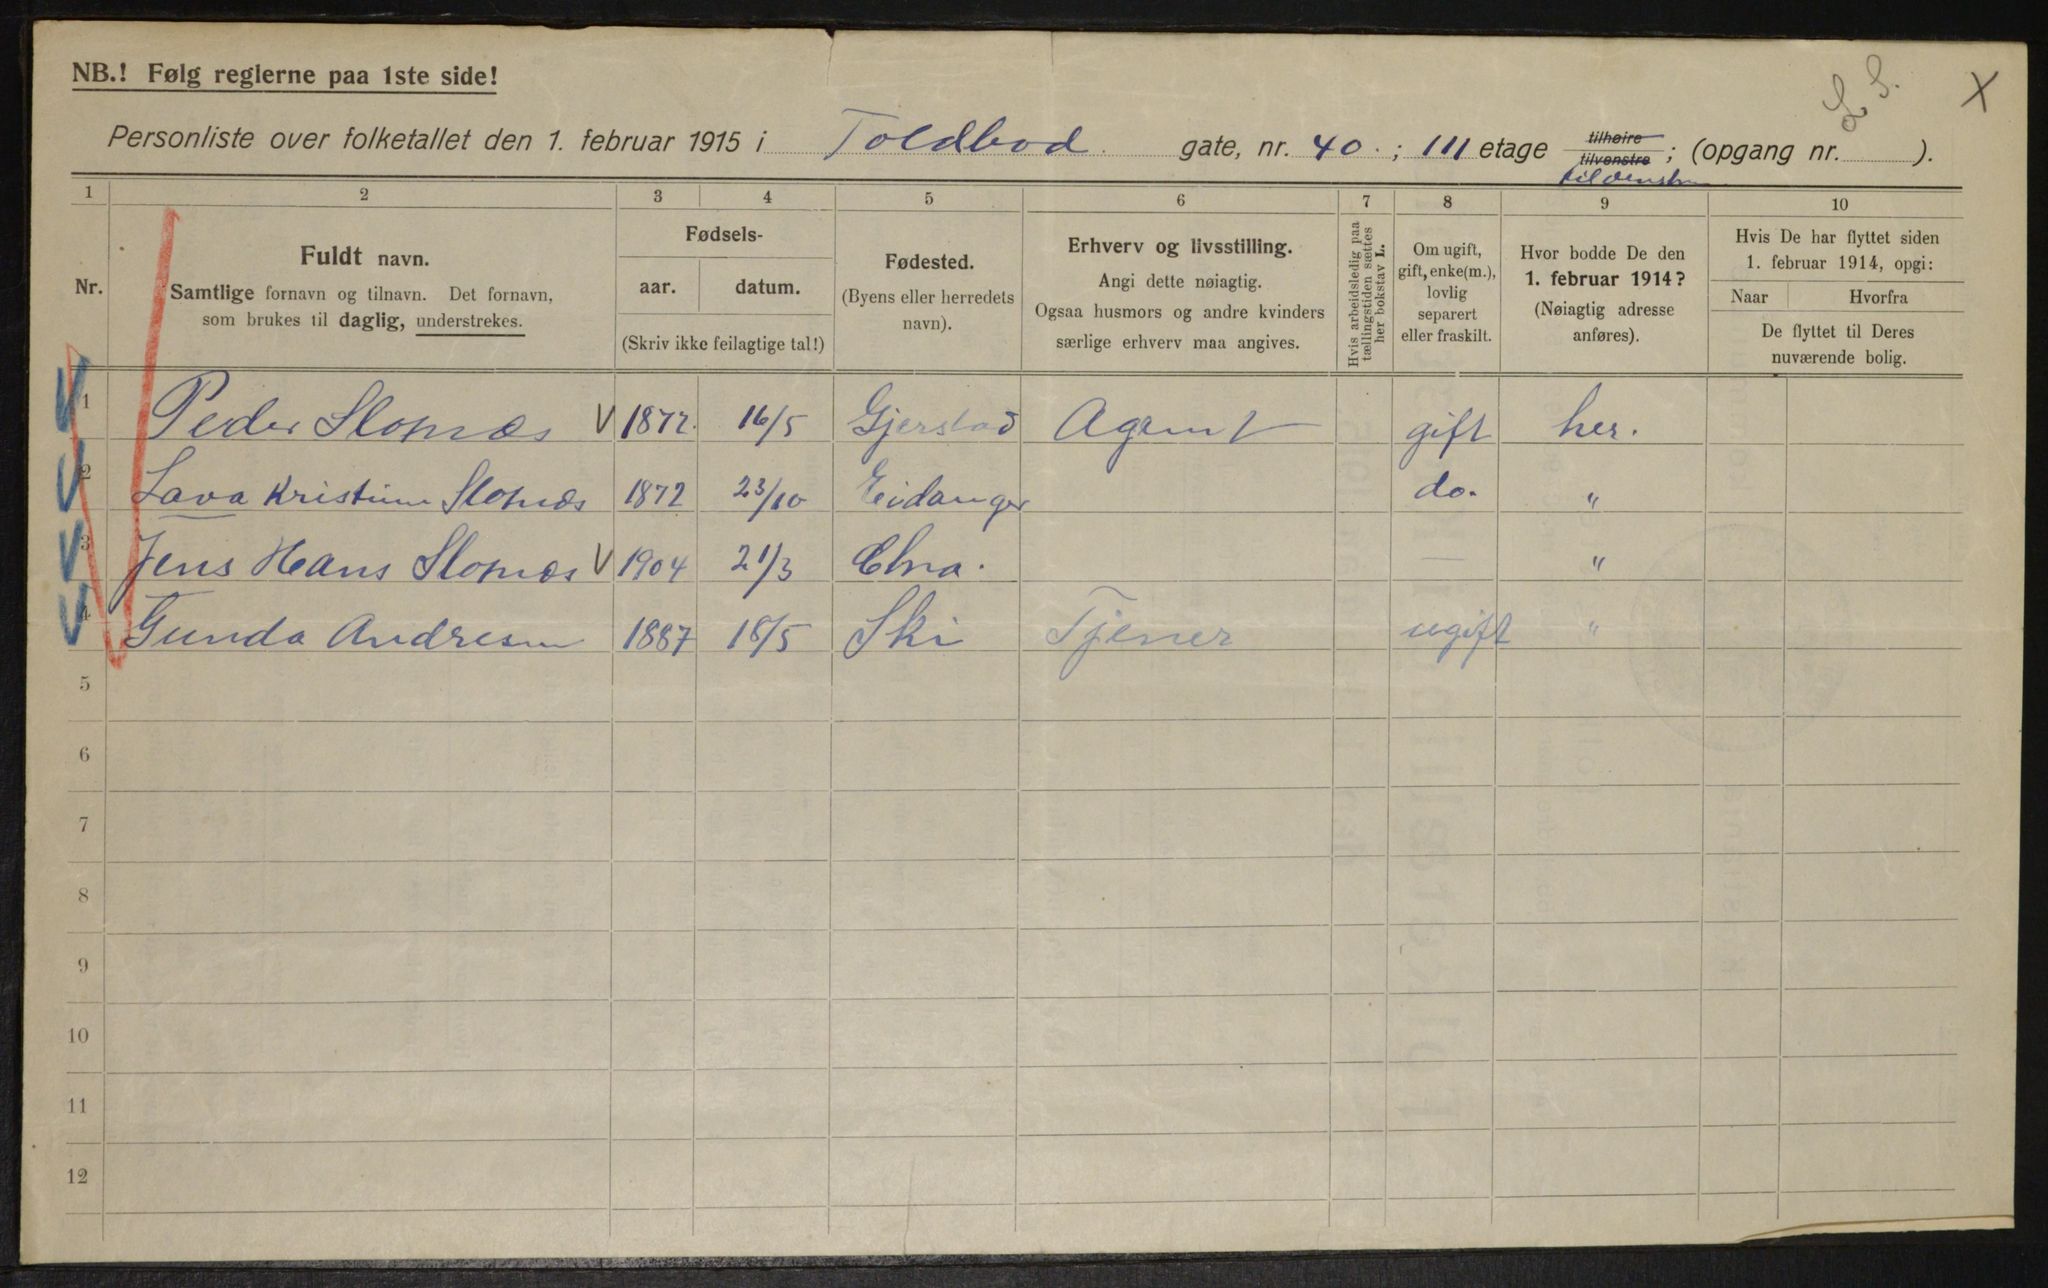 NB.! Følg reglerne paa 1ste side!
L. S. X
Personliste over folketallet den 1. februar 1915 i Toldbod gate, nr. 40. ; III etage tilhøire tilvenstre ; (opgang nr. ).
til venstre
1 2 3 4 5 6 7 8 9 10
Nr.
Fuldt navn.
Samtlige fornavn og tilnavn. Det fornavn,
som brukes til daglig, understrekes.
Fødsels-
aar. datum.
(Skriv ikke feilagtige tal!)
Fødested.
(Byens eller herredets
navn).
Erhverv og livsstilling.
Angi dette nøiagtig.
Ogsaa husmors og andre kvinders
særlige erhverv maa angives.
Hvis arbeidsledig paa
tællingstiden sættes
her bokstav L.
Om ugift,
gift, enke(m.),
lovlig
separert
eller fraskilt.
Hvor bodde De den
1. februar 1914?
(Nøiagtig adresse
anføres).
Hvis De har flyttet siden
1. februar 1914, opgi:
Naar Hvorfra
De flyttet til Deres
nuværende bolig.
1 Peder Slomæs V 1872. 16/5 Gjerstad Agent gift her.
2 Lava Kristine Slomæs 1872 23/10 Eidanger do. "
3 Jens Hans Slomæs V 1904 21/3 Chra. — "
4 Gunda Andresen 1887 18/5 Ski Tjener ugift "
5
6
7
8
9
10
11
12